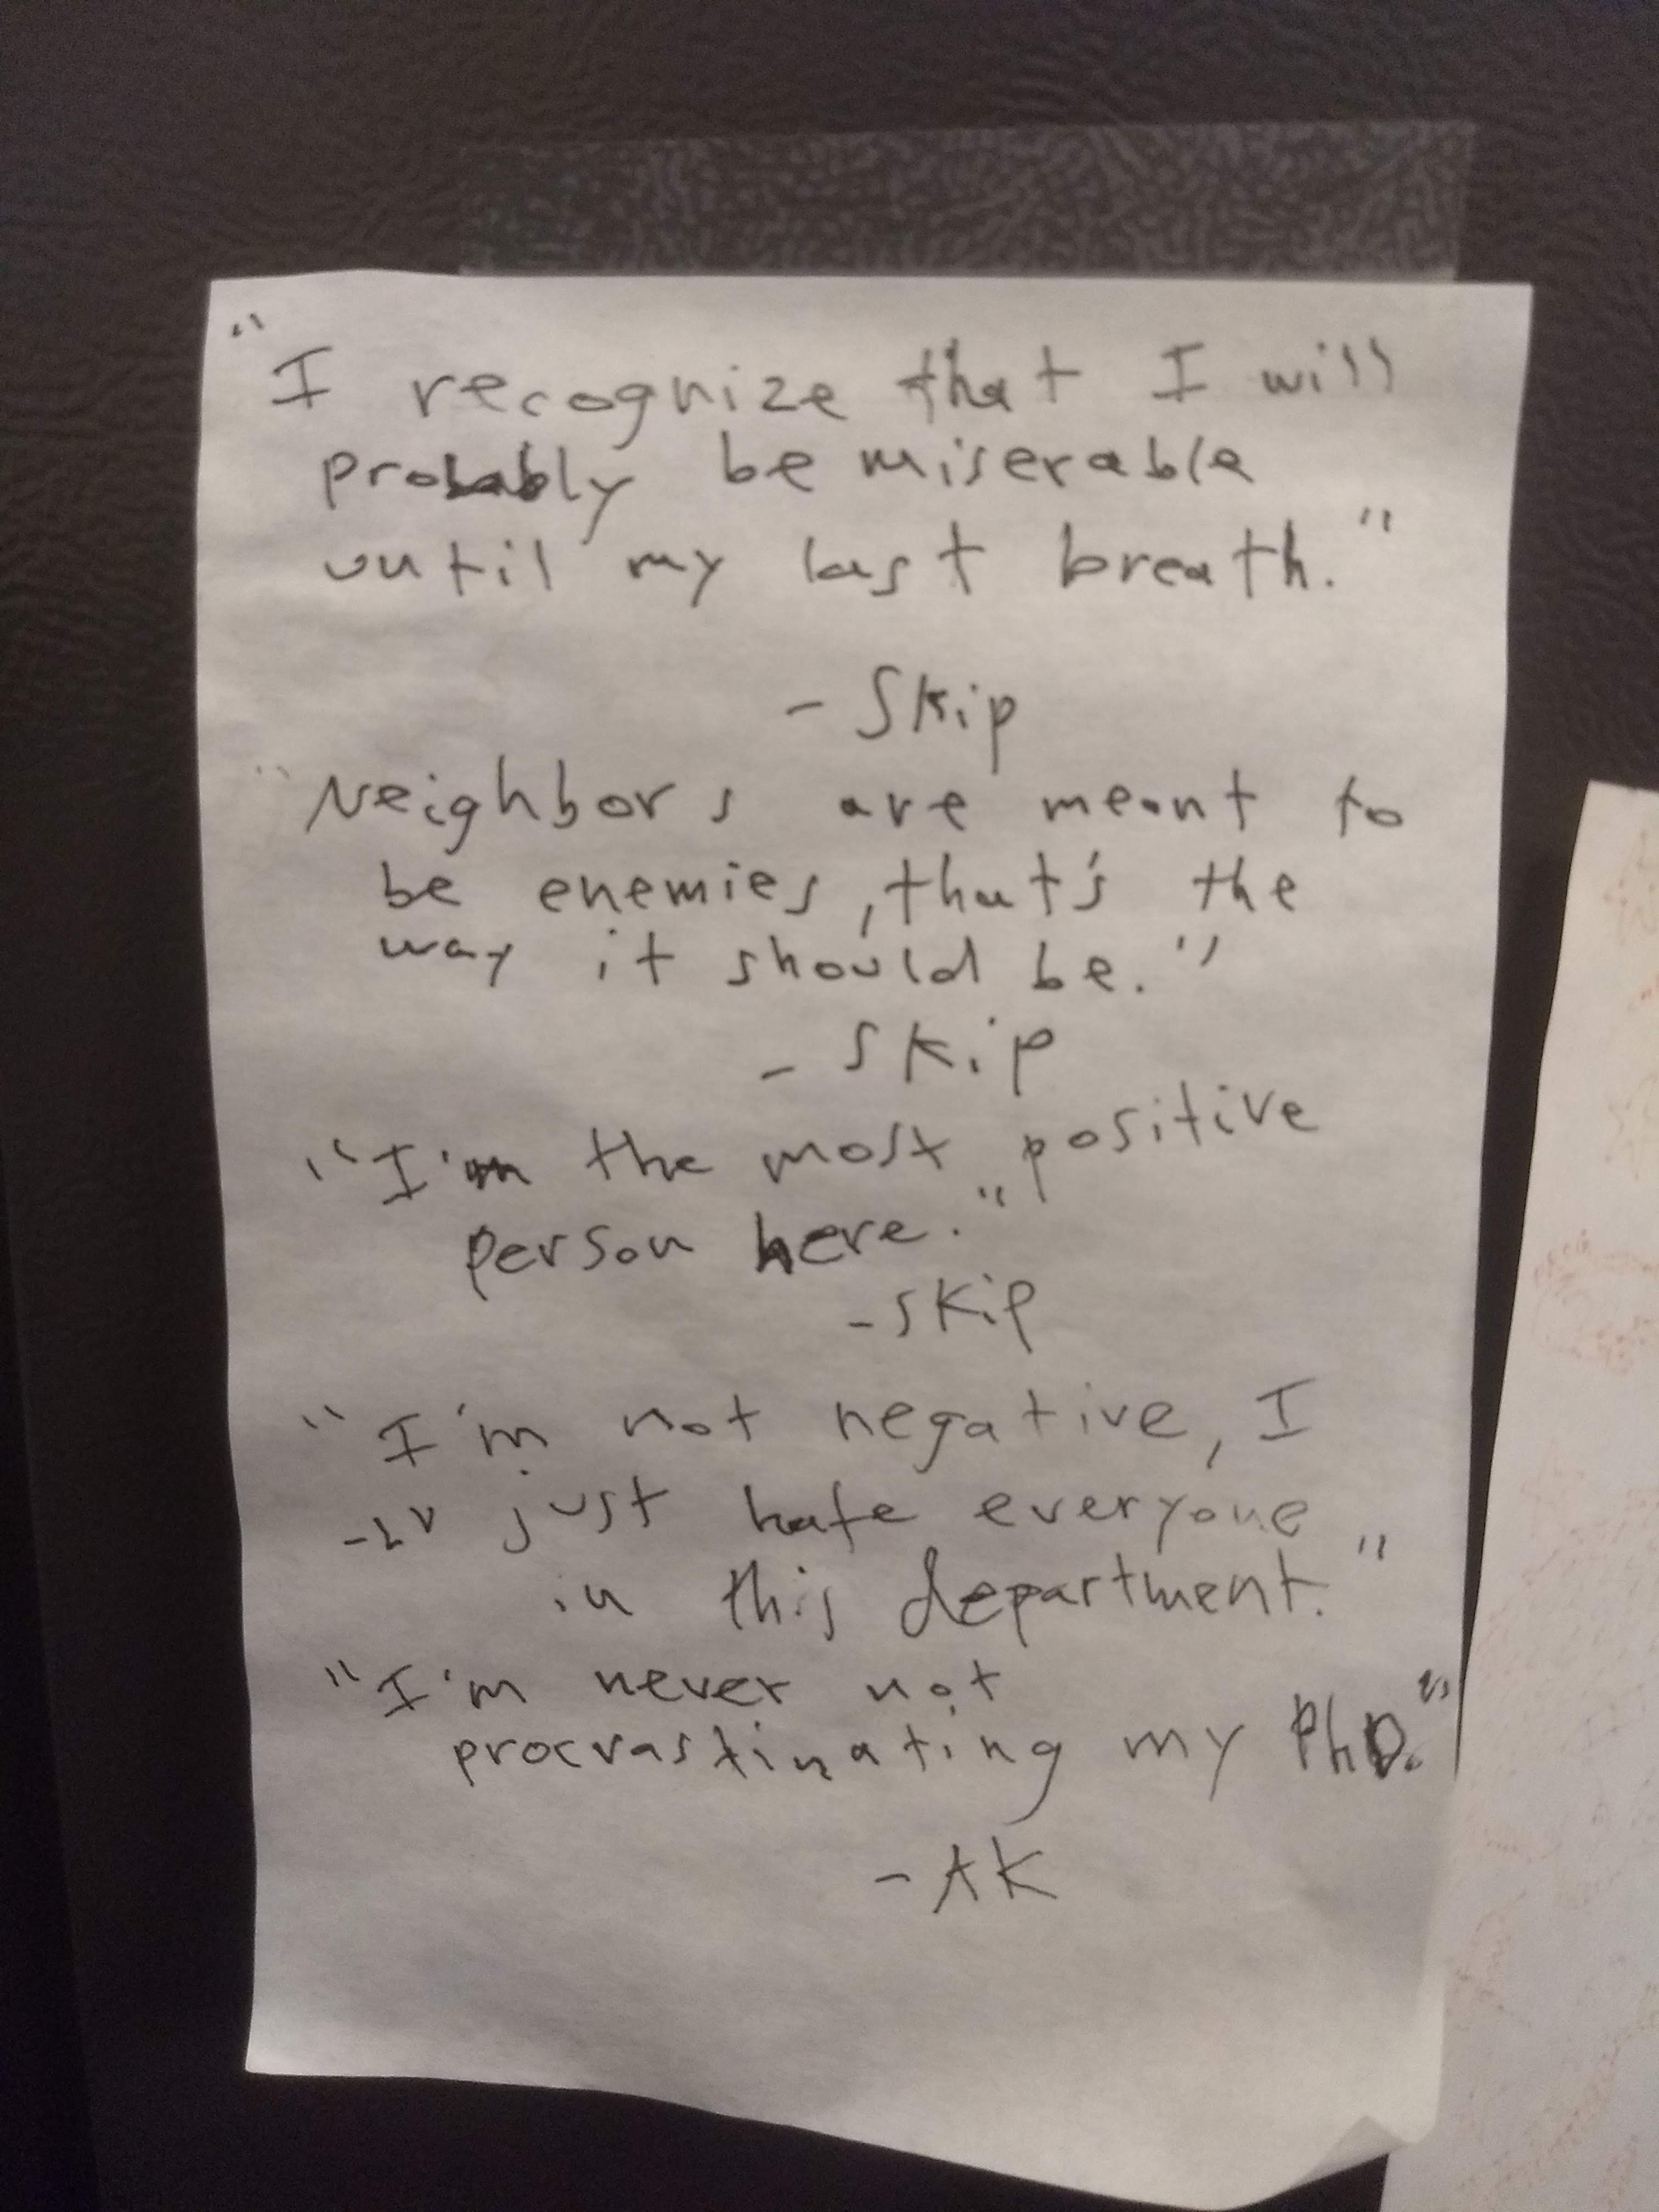 "I recognize that I will
probably be miserable
until my last breath."
- Skip
"Neighbors are meant to
be enemies, that's the
way it should be."
- Skip
"I'm the most positive
person here."
- Skip
"I'm not negative, I
just hate everyone
in this department."
"I'm never not
procrastinating my PhD."
- AK